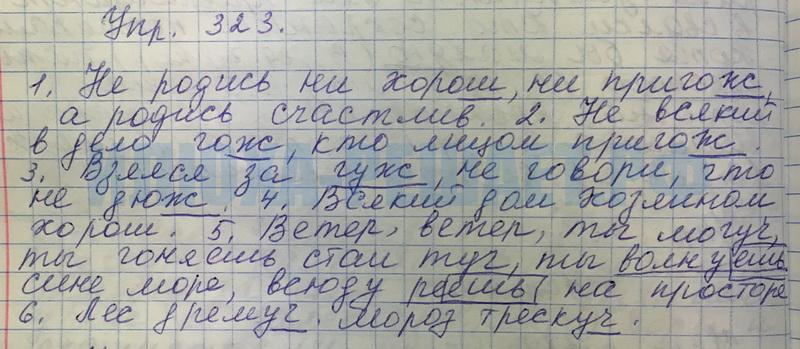 Упр. 323.
1. Не родись ни хорош, ни пригож,
а родись счастлив. 2. Не всякий
в дело гож, кто лицом пригож.
3. Взялся за гуж, не говори, что
не дюж. 4. Всякий дом хозяином
хорош. 5. Ветер, ветер, ты могуч,
ты гоняешь стаи туч, ты волнуешь
сине море, всюду веешь на просторе
6. Лес дремуч. Мороз трескуч.